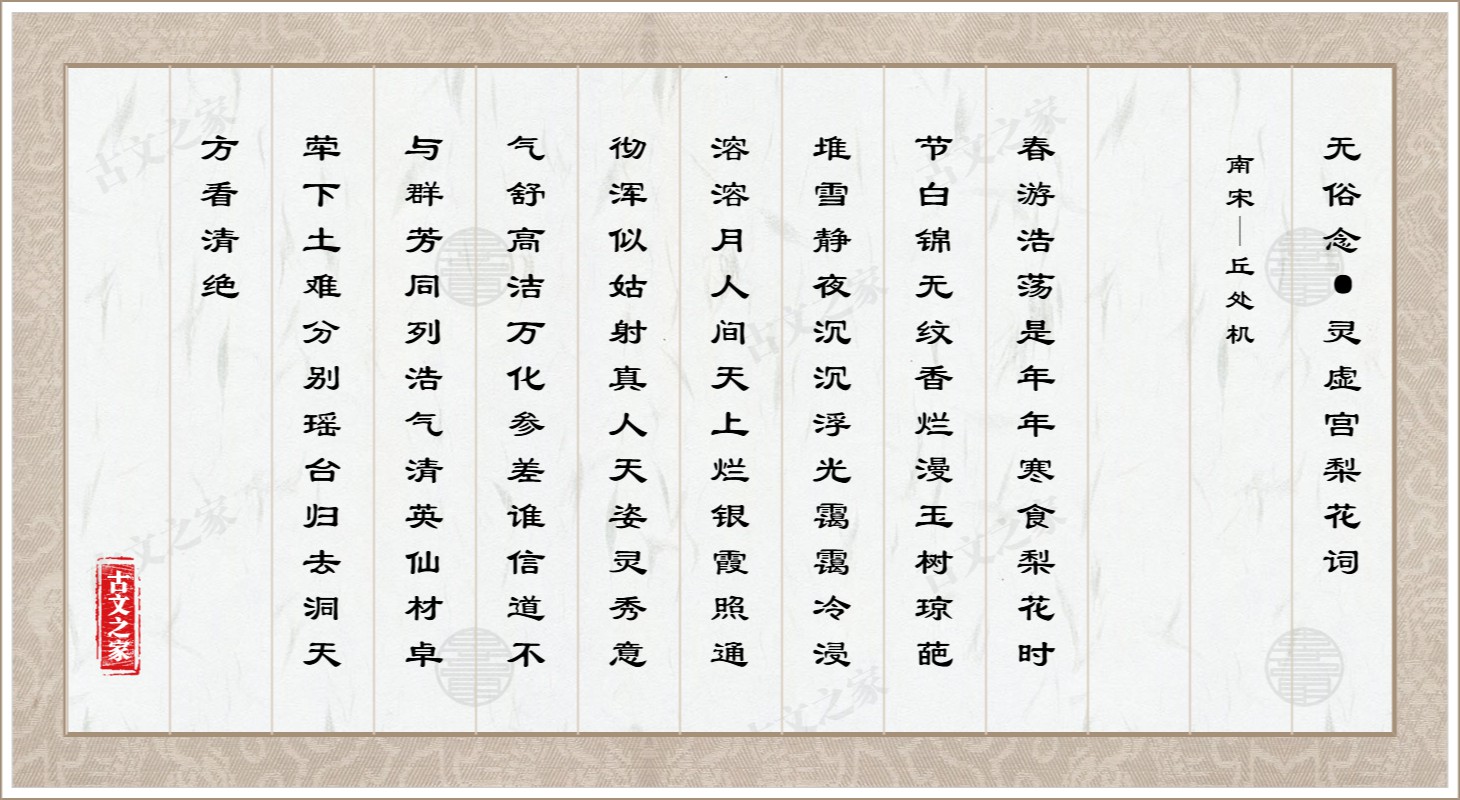 无俗念●灵虚宫梨花词
南宋—丘处机
春游浩荡是年年寒食梨花时
节白锦无纹香烂漫玉树琼葩
堆雪静夜沉沉浮光霭霭冷浸
溶溶月人间天上烂银霞照通
彻浑似姑射真人天姿灵秀意
气舒高洁万化参差谁信道不
与群芳同列浩气清英仙材卓
荦下土难分别瑶台归去洞天
方看清绝
古文之家
古文之家
古文之家
古文之家
古文之家
古文之家
古文之家